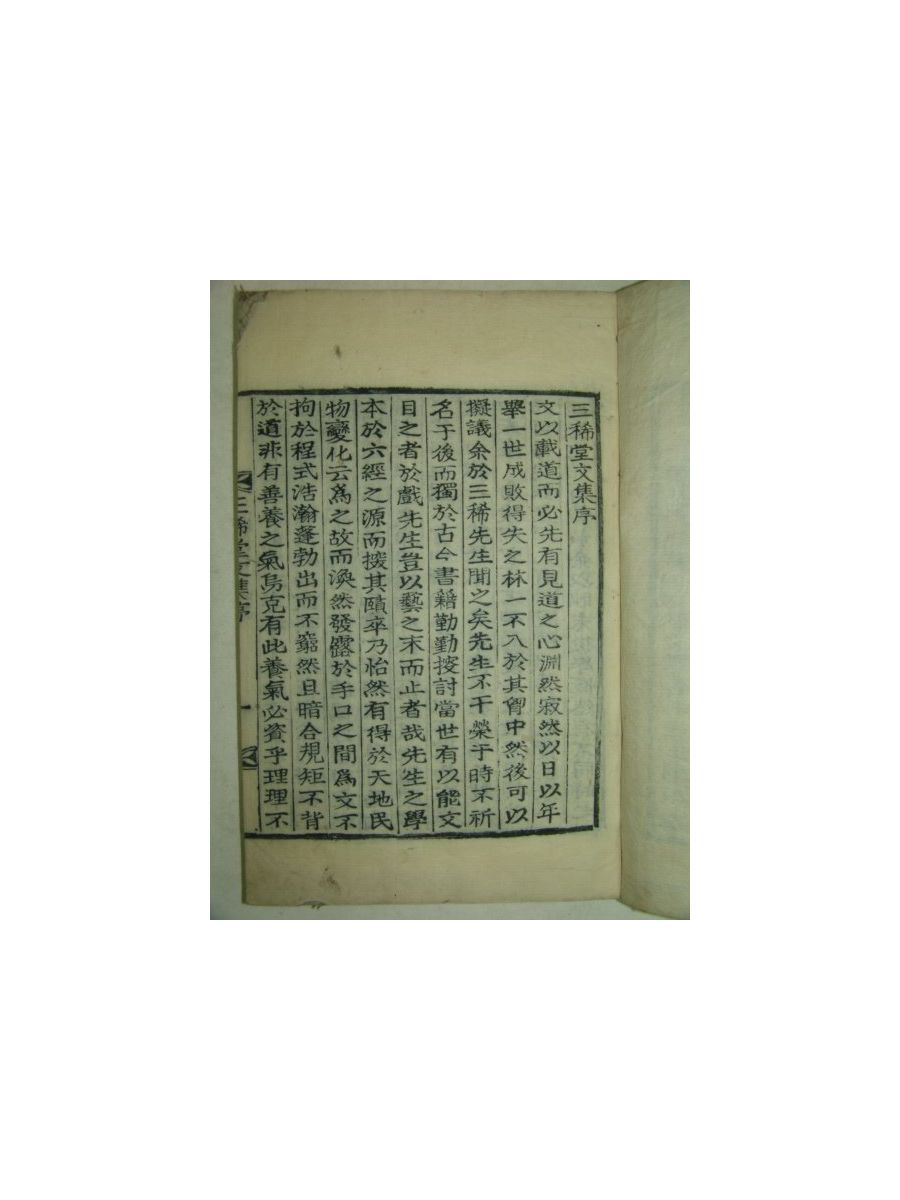 三稀堂文集序
文以載道而必先有見道之心淵然寂然以日以年
舉一世成敗得失之林一不入於其胷中然後可以
擬議余於三稀先生聞之矣先生不干榮于時不祈
名于後而獨於古今書籍勤勤搜討當世有以能文
目之者於戲先生豈以藝之末而止者哉先生之學
本於六經之源而探其賾卒乃怡然有得於天地民
物變化云爲之故而渙然發露於手口之間爲文不
拘於程式浩瀚蓬勃出而不窮然且暗合規矩不背
於道非有善養之氣烏克有此養氣必資乎理理不
三稀堂文集序 一